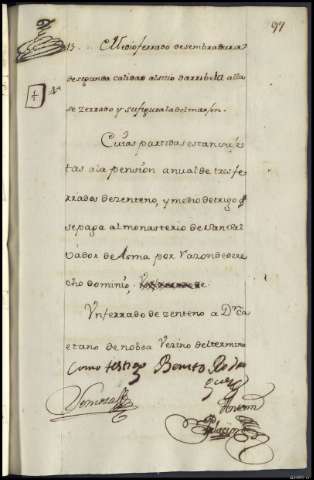 99
13.. Medio ferrado de sembradura
de segunda calidad al sitio da rribela alla
se zerrado y su figura la del marxen.
Cuias partidas estan suje
tas a la pension anual de tres fe
rrados de zenteno, y medio de trigo q
se paga al monasterio de San Sal
vador de Asma por razon de dere
cho dominio,
Un ferrado de zenteno a Dn Ca
etano de Noboa Vezino del termino
Como testigo Benito Rodri
guez